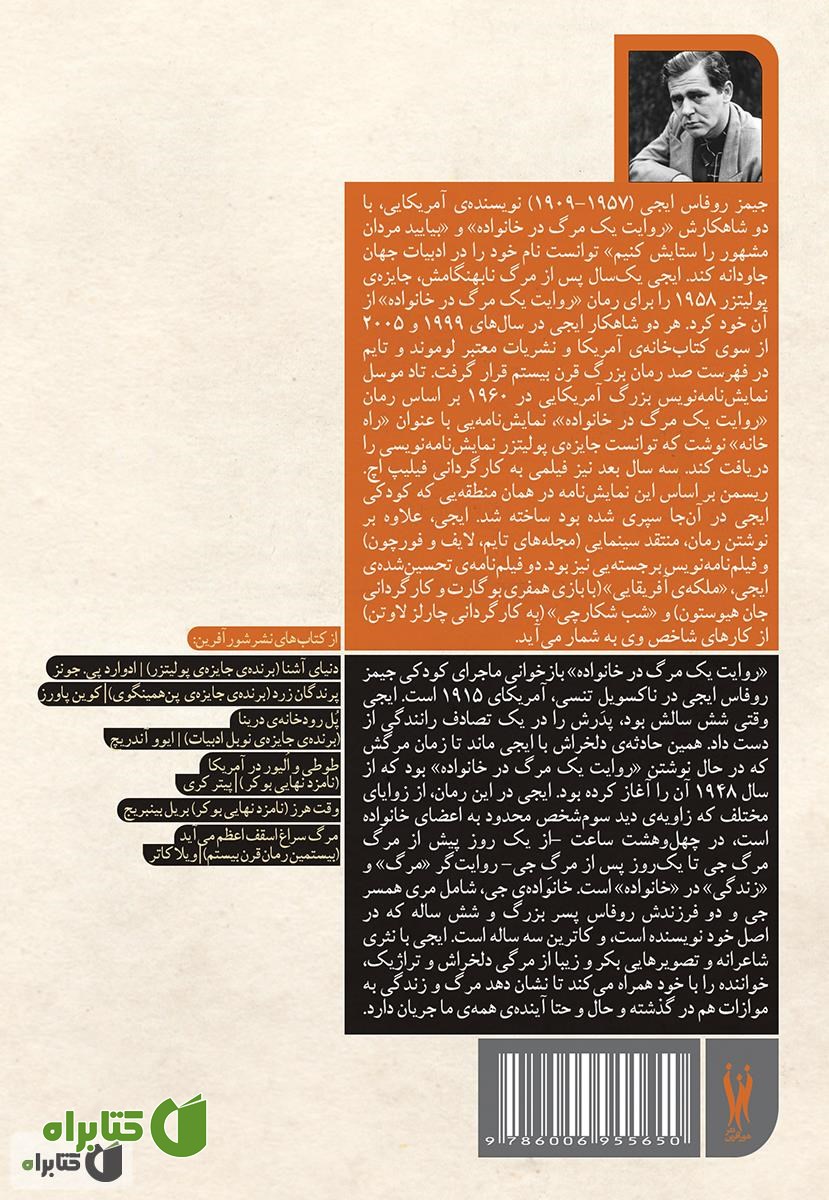 جیمز روفاس ایجی (۱۹۵۷-۱۹۰۹) نویسنده‌ی آمریکایی، با
دو شاهکارش «روایت یک مرگ در خانواده» و «بیایید مردان
مشهور را ستایش کنیم» توانست نام خود را در ادبیات جهان
جاودانه کند. ایجی یک‌سال پس از مرگ نابهنگامش، جایزه‌ی
پولیتزر ۱۹۵۸ را برای رمان «روایت یک مرگ در خانواده» از
آن خود کرد. هر دو شاهکار ایجی در سال‌های ۱۹۹۹ و ۲۰۰۵
از سوی کتاب‌خانه‌ی آمریکا و نشریات معتبر لوموند و تایم
در فهرست صد رمان بزرگ قرن بیستم قرار گرفت. تاد موسل
نمایش‌نامه‌نویس بزرگ آمریکایی در ۱۹۶۰ بر اساس رمان
«روایت یک مرگ در خانواده»، نمایش‌نامه‌یی با عنوان «راه
خانه» نوشت که توانست جایزه‌ی پولیتزر نمایش‌نامه‌نویسی را
دریافت کند. سه سال بعد نیز فیلمی به کارگردانی فیلیپ اچ.
ریسمن بر اساس این نمایش‌نامه در همان منطقه‌یی که کودکی
ایجی در آن‌جا سپری شده بود ساخته شد. ایجی، علاوه بر
نوشتن رمان، منتقد سینمایی (مجله‌های تایم، لایف و فورچون)
و فیلم‌نامه‌نویس برجسته‌یی نیز بود. دو فیلم‌نامه‌ی تحسین‌شده‌ی
ایجی، «ملکه‌ی آفریقایی» (با بازی همفری بوگارت و کارگردانی
جان هیوستون) و «شب شکارچی» (به کارگردانی چارلز لاوتن)
از کارهای شاخص وی به شمار می‌آید.
«روایت یک مرگ در خانواده» بازخوانی ماجرای کودکی جیمز
روفاس ایجی در ناکسویل تنسی، آمریکای ۱۹۱۵ است. ایجی
وقتی شش سالش بود، پدرش را در یک تصادف رانندگی از
دست داد. همین حادثه‌ی دلخراش با ایجی ماند تا زمان مرگش
که در حال نوشتن «روایت یک مرگ در خانواده» بود که از
سال ۱۹۴۸ آن را آغاز کرده بود. ایجی در این رمان، از زوایای
مختلف که زاویه‌ی دید سوم‌شخص محدود به اعضای خانواده
است، در چهل‌وهشت ساعت -از یک روز پیش از مرگ
مرگ جی تا یک‌روز پس از مرگ جی- روایت‌گر «مرگ» و
«زندگی» در «خانواده» است. خانواده‌ی جی، شامل مری همسر
جی و دو فرزندش روفاس پسر بزرگ و شش ساله که در
اصل خود نویسنده است، و کاترین سه ساله است. ایجی با نثری
شاعرانه و تصویرهایی بکر و زیبا از مرگی دلخراش و تراژیک،
خواننده را با خود همراه می‌کند تا نشان دهد مرگ و زندگی به
موازات هم در گذشته و حال و حتا آینده‌ی همه‌ی ما جریان دارد.
از کتاب‌های نشر شورآفرین:
دنیای آشنا (برنده‌ی جایزه‌ی پولیتزر) | ادوارد پی. جونز
پرندگان زرد (برنده‌ی جایزه‌ی پن‌همینگوی) | کوین پاورز
پُل رودخانه‌ی درینا
(برنده‌ی جایزه‌ی نوبل ادبیات) | ایوو آندریچ
طوطی و اُلیور در آمریکا
(نامزد نهایی بوکر) | پیتر کری
وقت هرز (نامزد نهایی بوکر) بریل بینبریج
مرگ سراغ اسقف اعظم می‌آید
(بیستمین رمان قرن بیستم) | ویلا کاتر
نشر
شورآفرین
9 786006 955650
کتابراه
کتابراه